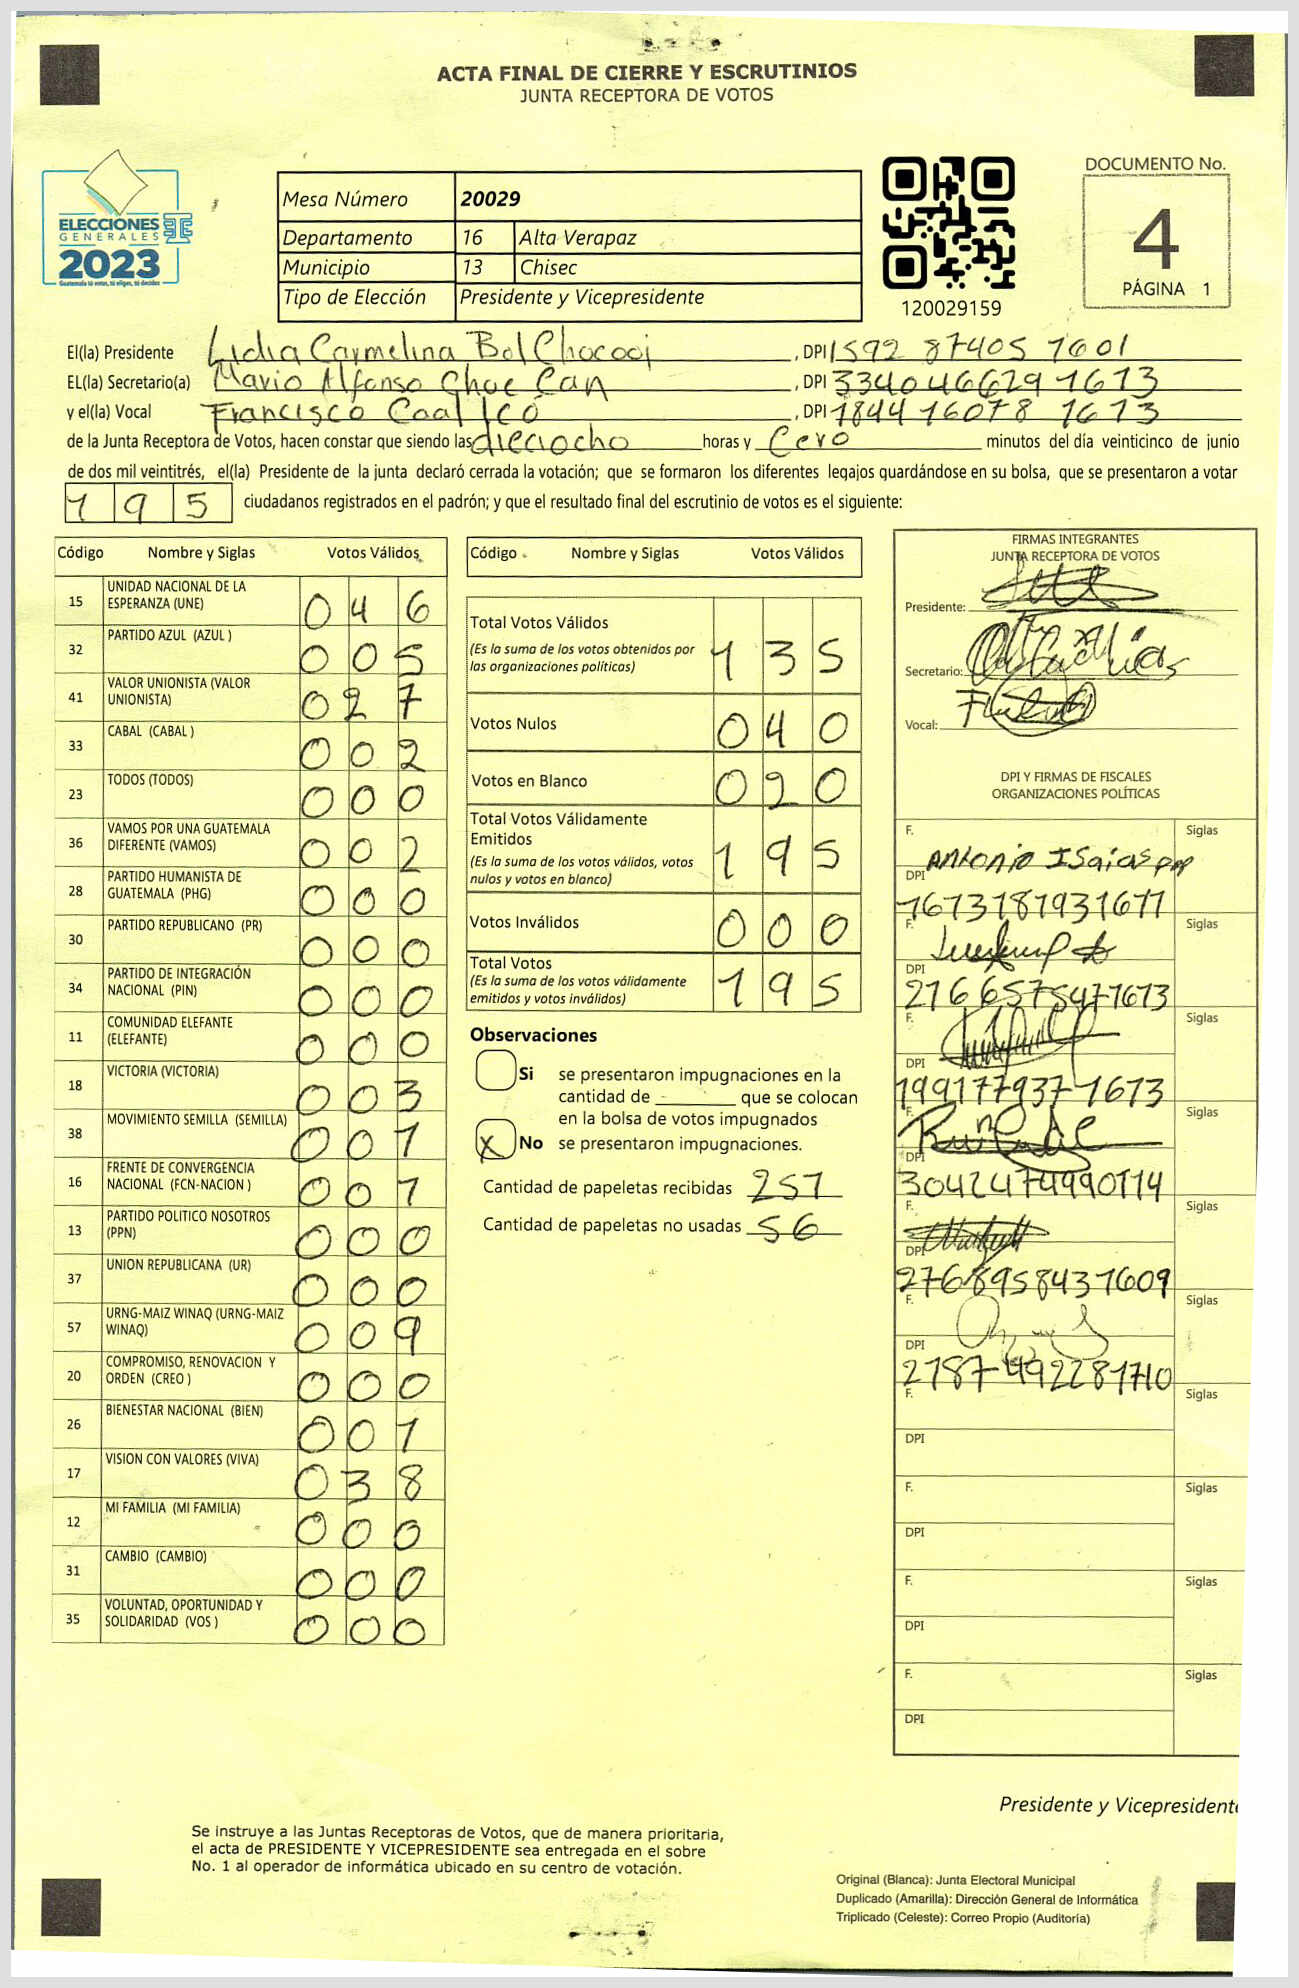 ACTA FINAL DE CIERRE Y ESCRUTINIOS
JUNTA RECEPTORA DE VOTOS
ELECCIONES
GENERALES
2023
Guatemala tú votas, tú eliges, tú decides
Mesa Número 20029
Departamento 16 Alta Verapaz
Municipio 13 Chisec
Tipo de Elección Presidente y Vicepresidente
120029159
DOCUMENTO No.
4
PÁGINA 1
El(la) Presidente Lidia Carmelina Bol Chocooj, DPI 1592 87405 1601
EL(la) Secretario(a) Mario Alfonso Choc Can, DPI 3340466291613
y el(la) Vocal Francisco Caal Icó, DPI 1844 16078 1613
de la Junta Receptora de Votos, hacen constar que siendo las dieciocho horas y Cero minutos del día veinticinco de junio
de dos mil veintitrés, el(la) Presidente de la junta declaró cerrada la votación; que se formaron los diferentes legajos quardándose en su bolsa, que se presentaron a votar
195 ciudadanos registrados en el padrón; y que el resultado final del escrutinio de votos es el siguiente:
Código Nombre y Siglas Votos Válidos
15 UNIDAD NACIONAL DE LA ESPERANZA (UNE) 046
32 PARTIDO AZUL (AZUL ) 005
41 VALOR UNIONISTA (VALOR UNIONISTA) 027
33 CABAL (CABAL ) 002
23 TODOS (TODOS) 000
36 VAMOS POR UNA GUATEMALA DIFERENTE (VAMOS) 002
28 PARTIDO HUMANISTA DE GUATEMALA (PHG) 000
30 PARTIDO REPUBLICANO (PR) 000
34 PARTIDO DE INTEGRACIÓN NACIONAL (PIN) 000
11 COMUNIDAD ELEFANTE (ELEFANTE) 000
18 VICTORIA (VICTORIA) 003
38 MOVIMIENTO SEMILLA (SEMILLA) 001
16 FRENTE DE CONVERGENCIA NACIONAL (FCN-NACION ) 001
13 PARTIDO POLITICO NOSOTROS (PPN) 000
37 UNION REPUBLICANA (UR) 000
57 URNG-MAIZ WINAQ (URNG-MAIZ WINAQ) 009
20 COMPROMISO, RENOVACION Y ORDEN (CREO ) 000
26 BIENESTAR NACIONAL (BIEN) 001
17 VISION CON VALORES (VIVA) 038
12 MI FAMILIA (MI FAMILIA) 000
31 CAMBIO (CAMBIO) 000
35 VOLUNTAD, OPORTUNIDAD Y SOLIDARIDAD (VOS ) 000
Código Nombre y Siglas Votos Válidos
Total Votos Válidos 135
(Es la suma de los votos obtenidos por
las organizaciones políticas)
Votos Nulos 040
Votos en Blanco 020
Total Votos Válidamente
Emitidos 195
(Es la suma de los votos válidos, votos
nulos y votos en blanco)
Votos Inválidos 000
Total Votos 195
(Es la suma de los votos válidamente
emitidos y votos inválidos)
Observaciones
Si se presentaron impugnaciones en la
cantidad de ________ que se colocan
en la bolsa de votos impugnados
X No se presentaron impugnaciones.
Cantidad de papeletas recibidas 251
Cantidad de papeletas no usadas 56
FIRMAS INTEGRANTES
JUNTA RECEPTORA DE VOTOS
Presidente:
Secretario:
Vocal:
DPI Y FIRMAS DE FISCALES
ORGANIZACIONES POLÍTICAS
F. Antonio Isaias Siglas
DPI 1673187931611
F. Siglas
DPI 2166575471613
F. Siglas
DPI 1991779371613
F. Siglas
DPI 3042474990114
F. Siglas
DPI 2768958431609
F. Siglas
DPI 2787492281710
F. Siglas
DPI
F. Siglas
DPI
F. Siglas
DPI
F. Siglas
DPI
Presidente y Vicepresident
Se instruye a las Juntas Receptoras de Votos, que de manera prioritaria,
el acta de PRESIDENTE Y VICEPRESIDENTE sea entregada en el sobre
No. 1 al operador de informática ubicado en su centro de votación.
Original (Blanca): Junta Electoral Municipal
Duplicado (Amarilla): Dirección General de Informática
Triplicado (Celeste): Correo Propio (Auditoría)